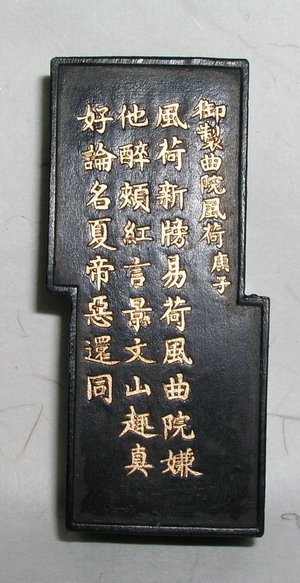 御製曲院風荷 庚子
風荷新牓易荷風曲院嫌
他醉頰紅言景文山趣真
好論名夏帝惡還同